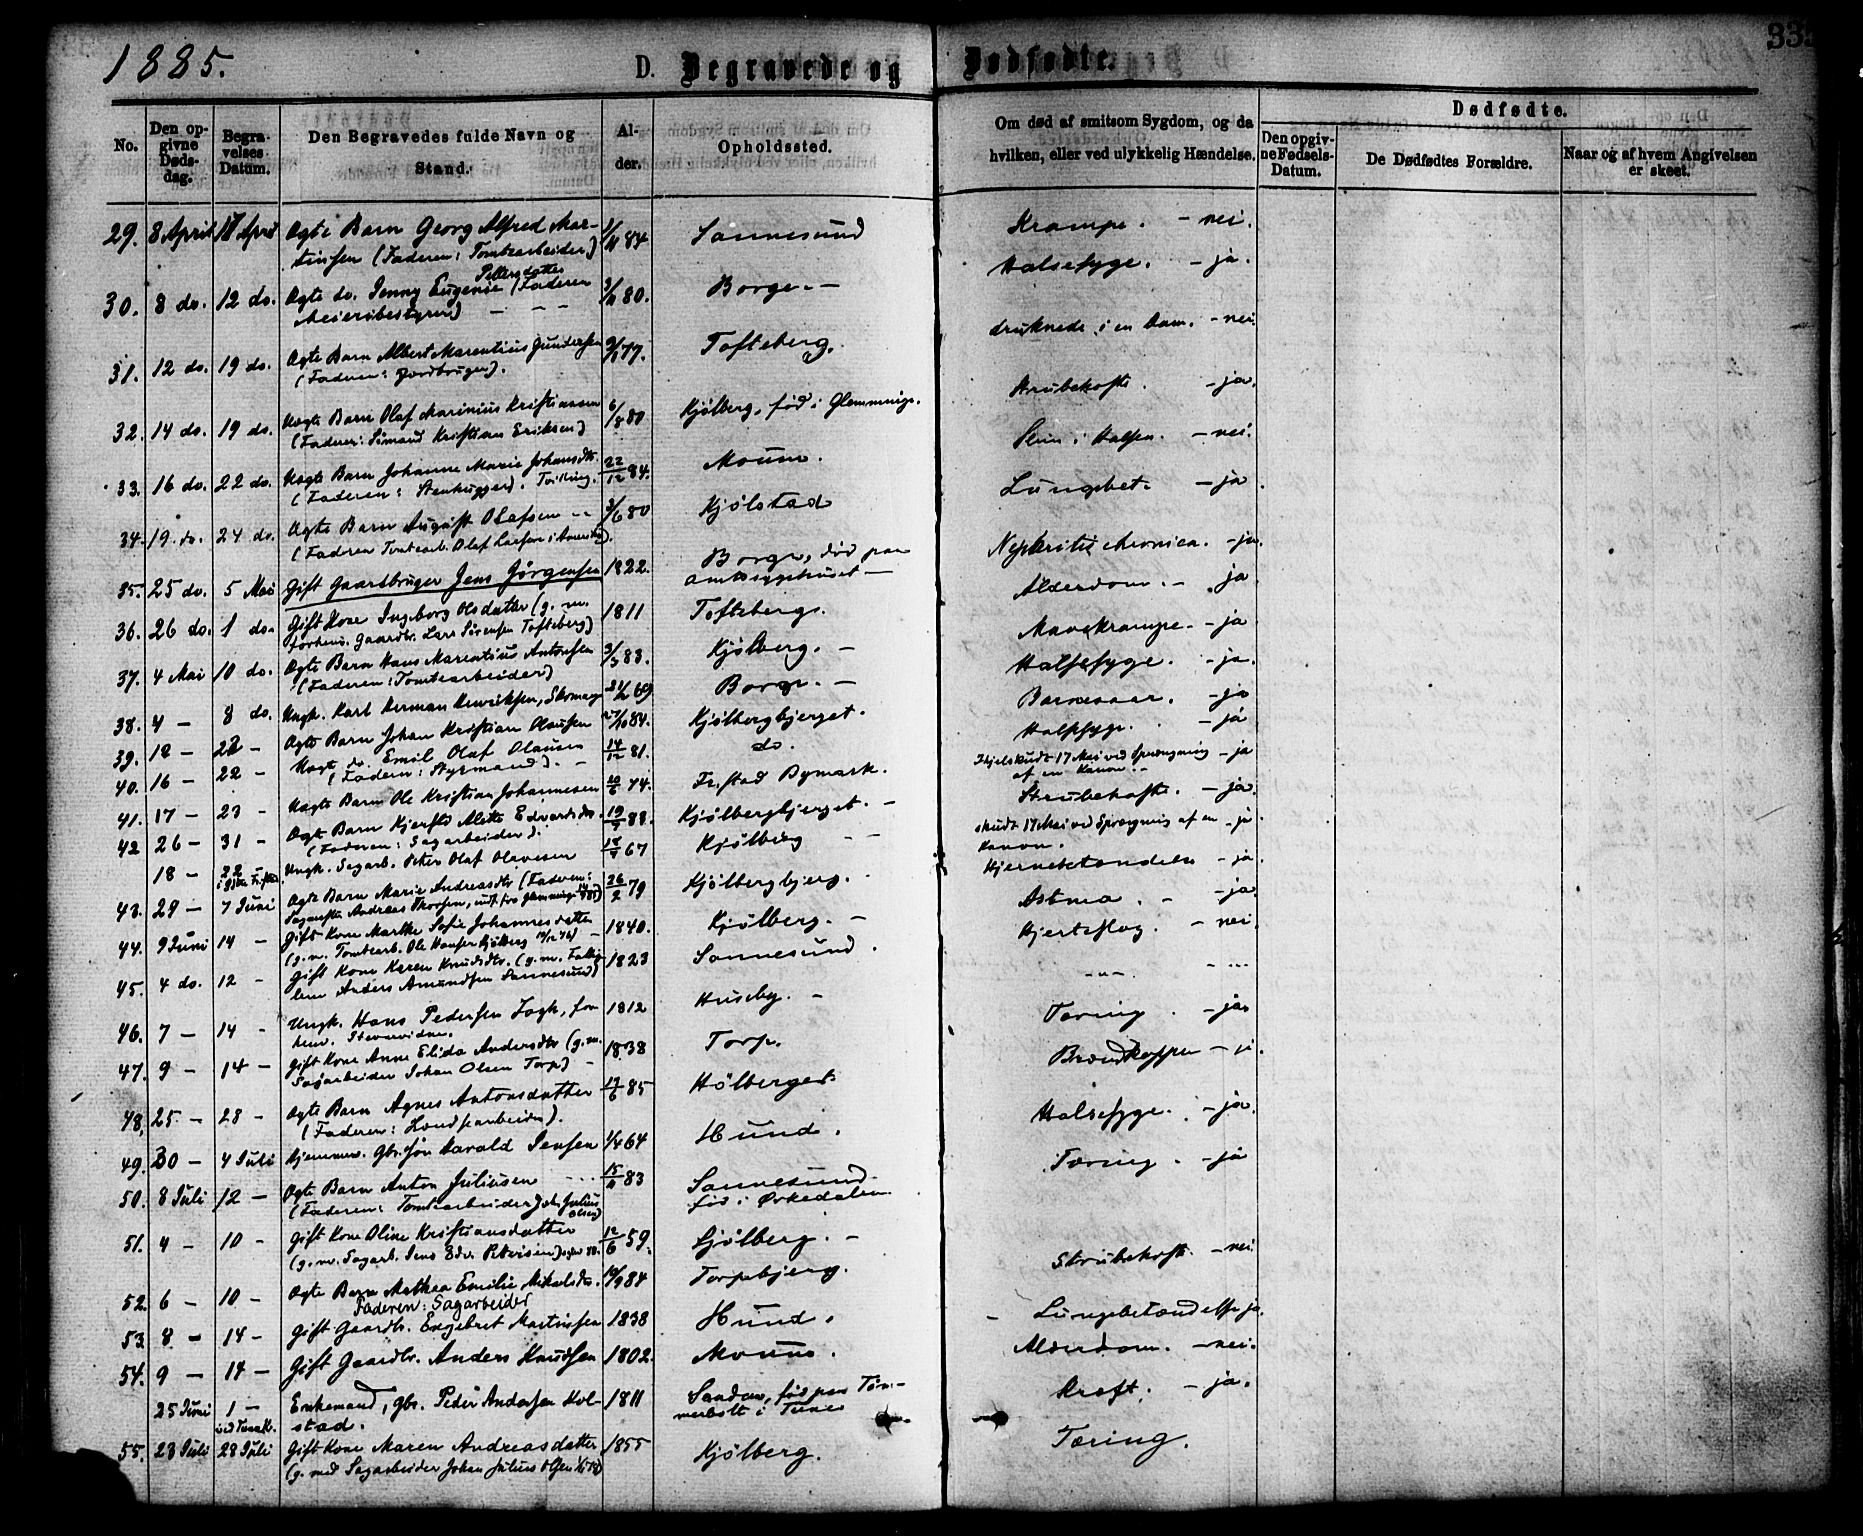 1885.
D. Begravede og Dødfødte.
333
No.
Den opgivne Dødsdag.
Begravelses Datum.
Den Begravedes fulde Navn og Stand.
Alder.
Opholdssted.
Om død af smitsom Sygdom, og da hvilken, eller ved ulykkelig Hændelse.
Dødfødte.
Den opgivne Fødsels-Datum.
De Dødfødtes Forældre.
Naar og af hvem Angivelsen er skeet.
29. 8 April 18 April Ægte Barn Georg Alfred Mar- 84 Sannesund Krampe. - nei.
tinsen (Faderen: Tomtearbeider)
30. 8 do. 12 do. Ægte do. Jenny Eugenie Pettersdatter (Faderen 80. Borge - Halsesyge. - ja.
Meieribestyrer) - - -
31. 12 do. 19 do. Ægte Barn Albert Marentius Gundersen 77. Tofteberg. druknede i en Dam. - nei.
(Faderen: Jordbruger).
32. 14 do. 19 do. Uægte Barn Olaf Marinius Kristiansen 6/8 80 Kjølberg, fød i Glemminge. Strubehoste. - ja.
(Faderen: Sømand Kristian Eriksen)
33. 16 do. 22 do. Uægte Barn Johanne Marie Johansdtr. 22/12 84. Moum. Slim i Halsen. - nei.
(Faderen: Stenhugger). Tvilling.
34. 19 do. 24 do. Ægte Barn August Olafsen - 3/6 80 Kjølstad Lungebet. - ja.
(Faderen Tomtearb. Olaf Larsen i Amerika).
35. 25 do. 5 Mai Gift Gaardbruger Jens Jørgensen 1822. Borge, død paa Nephritis chronica. - ja.
amtssygehuset -
36. 26 do. 1 do. Gift Kone Ingeborg Olsdatter (g. m. 1811 Tofteberg. Alderdom. - ja
forhenv. Gaardbr. Lars Sørensen Tofteberg)
37. 4 Mai 10 do. Ægte Barn Hans Marentius Antonsen 3/3 83. Kjølberg. - Mavekrampe. - ja
(Faderen: Tomtearbeider)
38. 4 - 8 do. Ungk. Karl Herman Henriksen, Skomager 69 Borge. - Halsesyge. - ja.
39. 18 - 22 - Ægte Barn Johan Kristian Olausen 27/10 84. Kjølbergbjerget. Barnesaar. - ja
40. 16 - 22 - Uægt. do. Emil Olaf Olausen 14/12 81. do. Halssyge. - ja
(Faderen: Styrmand). -
41. 17 - 23 - Uægte Barn Ole Kristian Johannesen 74. Fr.stad Bymark. Ihjelskudt 17 Mai ved Sprængning - ja
af en Kanon. -
42 26 - 31 - Ægte Barn Kjersti Edvardsdtr. 88. Kjølbergbjerget. - Strubehoste. - ja.
(Faderen: Sagarbeider).
18 - 22 - Ungk. Sagarb. Peter Olaf Olavesen 67 Kjølberg - - skudt 17 Mai ved Sprængning af en - ja
Kanon.
43. 29 - 7 Juni Ægte Barn Marie Andreasdtr. (Faderen: 26/2 79 Kjølbergbjerg. - Hjernebetændelse - ja.
Sagmester Andreas Thorsen, indf. fra Glemminge)
44. 9 Juni 14 - Gift Kone Marthe Sofie Johannesdatter 1840. Kjølberg. - Astma. - - ja.
(g. m. Tomtearb. Ole Hansen Kjølberg) -
45. 4 do. 12 - Gift Kone Karen Knudsdtr. (g. m. Fattig- 1823 Sannesund. Hjerteslag. - nei.
lem Anders Amundsen Sannesund)
46. 7 - 14 - Ungk. Hans Pedersen Jogh, for- 1812 Huseby. - - - - ...
henv.
47. 9 - 14 - Gift Kone Anne Elida Andersdtr (g. m. 1838 Torp. Tæring. - ja.
Sagarbeider Johan Olsen Torp) -
48. 25. - 28 - Ægte Barn Agnes Antonsdatter 85 Hølberget.
(Faderen: Landsarbeider).
49. 30 - 4 Juli Hjemmev. Gbr.søn Harald Jensen 64 Hund. Halsesyge. - ja.
50. 8 Juli 12 - Ægte Barn Anton Juliusen 83 Sannesund. Tæring. - ja
(Faderen: Tomtearbeider Julius Olsen) fød i Ørkedalen
51. 4 - 10 - Gift Kone Oline Kristiansdatter 12/6 59. Kjølberg. -
52. 6 - 10 - Ægte Barn Mathea Emilie Nikolsdtr. 84 Torpebjerg. Strubehoste - nei.
Faderen: Sagarbeider
53. 8 - 14 - Gift Gaardbr. Engebret Martinsen 1838 Hund. Lungebetændelse ja.
54. 9 - 14 - Gift Gaardbr. Anders Knudsen 1802. Moum. Alderdom. - nei.
25 Juni 1 - Enkemand, gbr. Peder Andersen Hol- 1811 Sandem, død paa Tøm- Kræft. - ja.
stad. merholt i Tune
55. 23 Juli 28 Juli Gift Kone Maren Andreasdatter 1855 Kjølberg. Tæring.
(g. med Sagarbeider Johan Julius Olsen)